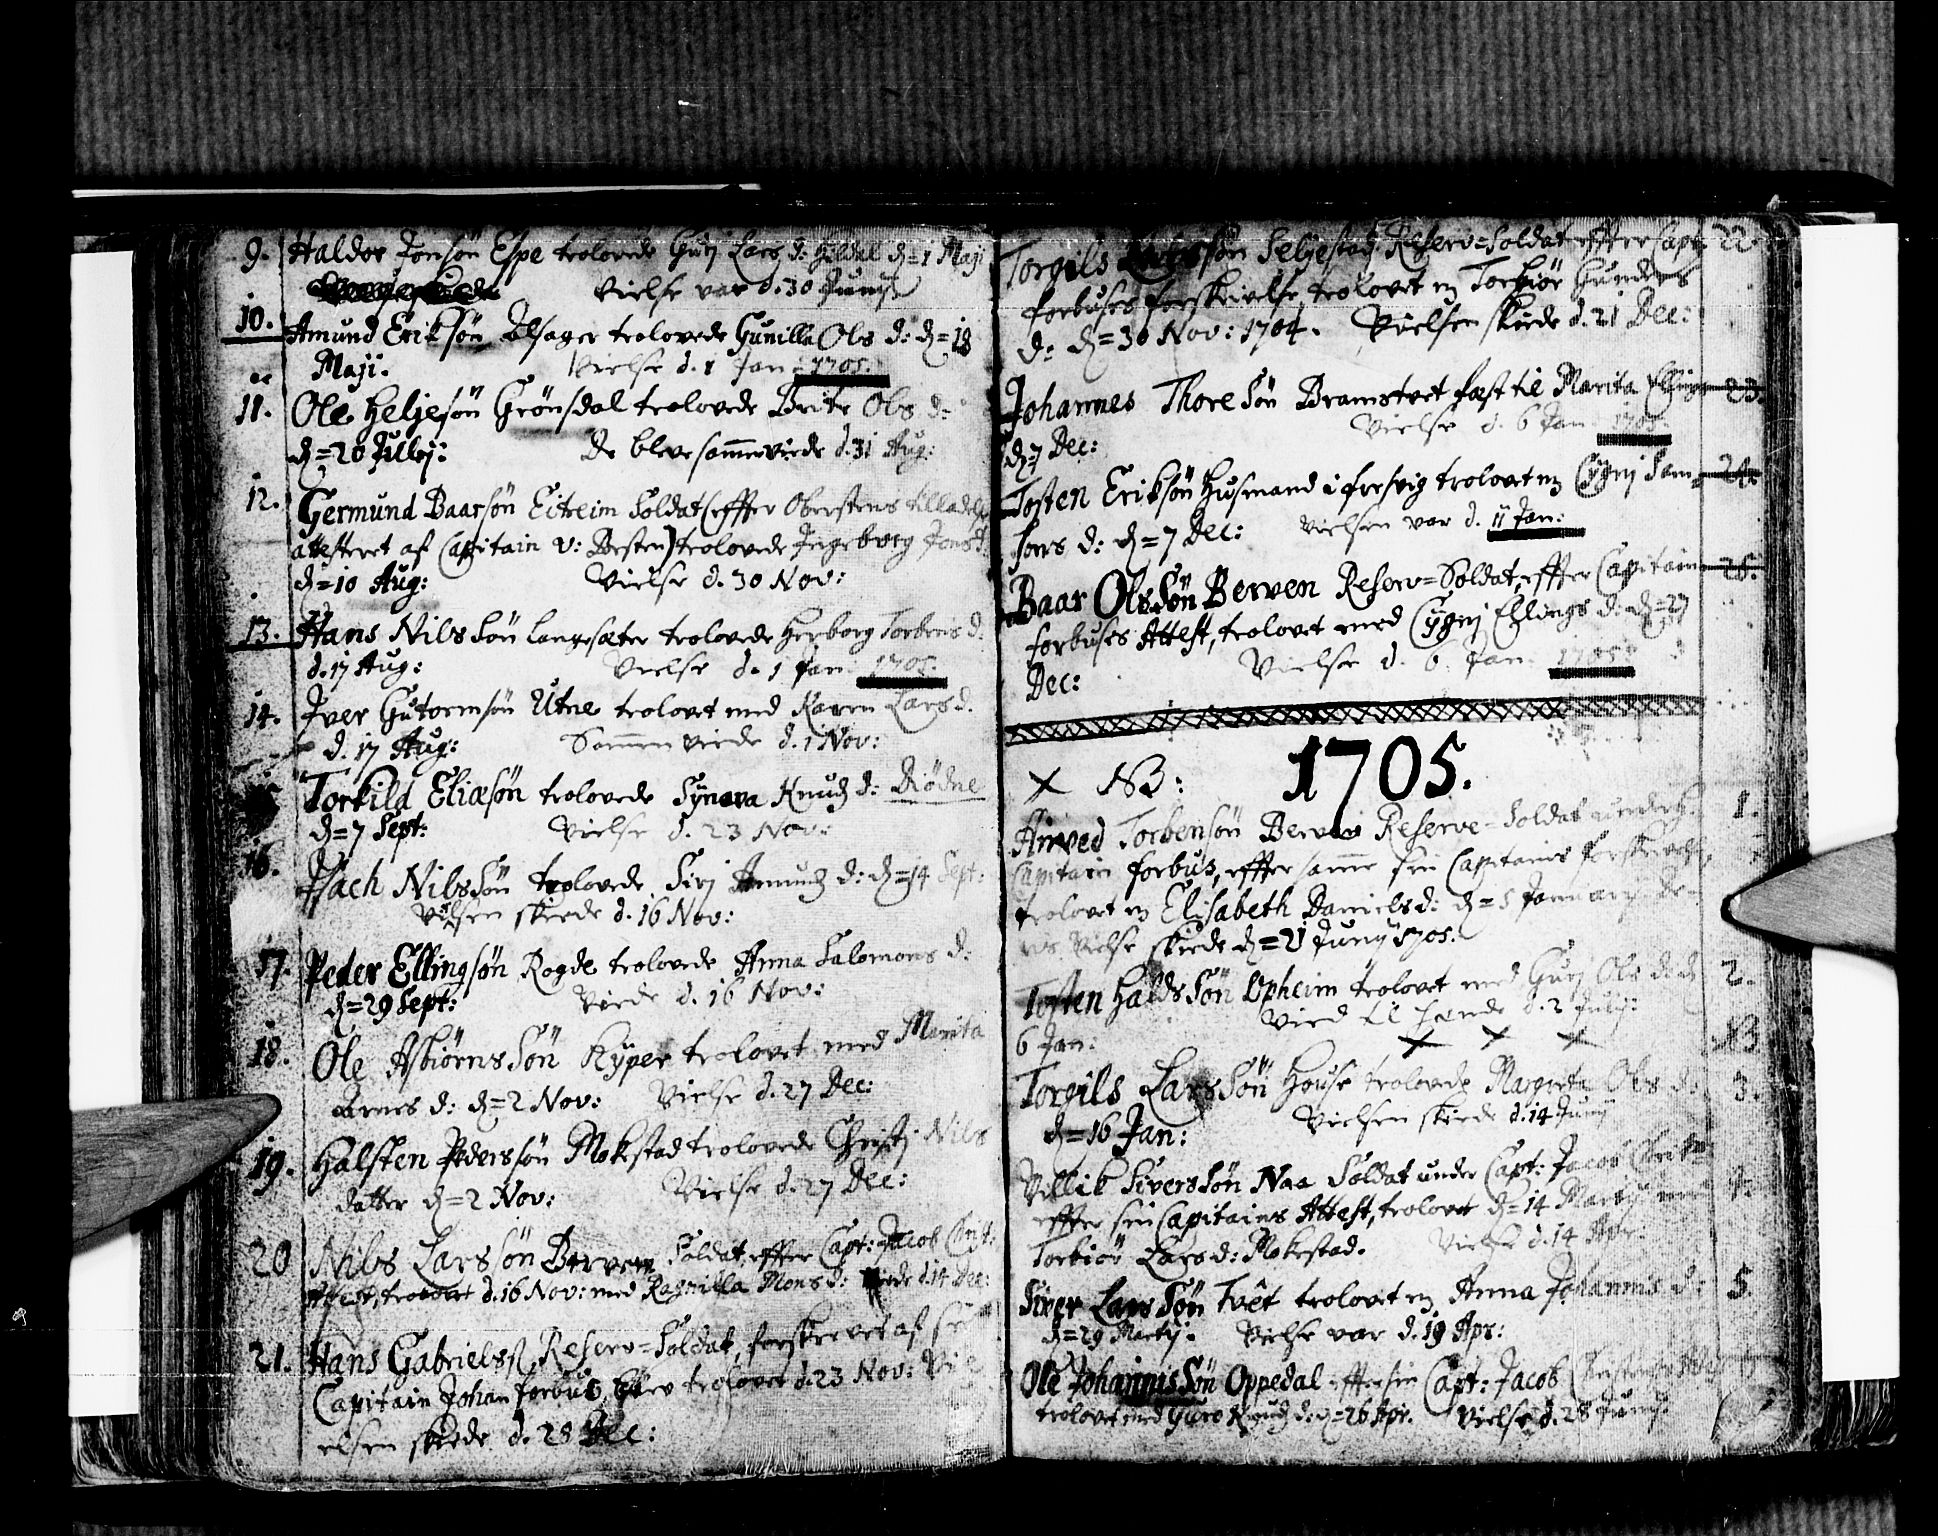 9. Haldor Jonsøn Espe trolovede Guri Lars d: Hildal d=1 Maji
Vielse var d. 30 Junij
10. Amund Eriksøn Alsager trolovede Gunilla Ols d: d=18
Maji. Vielse d. 1 Jan: 1705.
11. Ole Heljesøn Grønsdal trolovede Brite Ols d:
d=20 Julij: De bleve sammenviede d. 31 Aug:
12. Germund Baarsøn Eitreim Soldat (effter Oberstens tilladelse
attesteret af Capitain v: Besten) trolovede Ingeborg Jons d.
d=10 Aug: Vielse d. 30 Nov:
13. Hans Nilssøn Langesæter trolovede Herborg Torbens d.
d. 17 Aug: Vielse d. 1 Jan: 1705.
14. Iver Gutormsøn Utne trolovet med Karen Lars d.
d. 17 Aug: Sammenviede d. 1 Nov:
Torkild Eliæsøn trolovede Synava Knudz d: Diødne
d=7 Sept: Vielse d. 23 Nov:
16. Isach Nilssøn trolovede Siri Amundz d: d=14 Sept:
Vielsen skeede d. 16 Nov:
17. Peder Ellingsøn Rogde trolovede Anna Salomons d:
d=29 Sept: Viede d. 16 Nov:
18. Ole Asbiørnssøn Kyper trolovet med Marita
Arnes d: d=2 Nov: Vielse d. 27 Dec:
19. Halsten Pederssøn Mokestad trolovede Christi Nils
datter d=2 Nov: Vielse d. 27 Dec:
20 Nils Larssøn Berven Soldat, effter Capt: Jacob Christ:
Attest, trolovet d. 16 Nov: med Ragnilla Mons d: Viede d. 14 Dec:
21. Hans Gabrielsß Reserv=Soldat, forskrevet af
Capitain Johan Forbus, blev trolovet d. 23 Nov: Vi
elsen skeede d. 28 Dec:
Torgils Larssøn Seljestad Reserv=Soldat effter Capt: 22
Forbuses forskrivelse, trolovet m Torbiør Gunders
d: d=30 Nov: 1704. Vielsen skede d. 21 Dec:
Johannes Thoresøn Bramstvet fæst til Marita Ellings 23.
d=7 Dec: Vielse d. 6 Jan 1705.
Tosten Eriksøn Husmand i Fresvig trolovet m Cygni Sam= 24.
sons d: d=7 Dec: Vielsen var d. 11 Jan:
Baar Olssøn Berven Reserv=Soldat, effter Capitain 25.
Forbuses Attest, trolovet med Cygni Eldings d: d=27
Dec: Vielse d. 6. Jan: 1705
1705.
× NB:
Amved Torbensøn Berven Reserve=Soldat under 1.
Capitain Forbus, effter samme sin Capitains forskrivelse,
trolovet m Elisabeth Daniels d: d=5 January De=
res Vielse skede d=21 Junij 1705.
Tosten Haldssøn Opheim trolovet med Guri Ols d: d 2.
6 Jan: Vied til hende d. 2 Julij:
× × × NB
Torgils Larssøn House trolovede Margreta Ols d: 3.
d=16 Jan: Vielsen skeede d. 14 Junij
Villik Siverssøn Naa Soldat under Capt: Jacob Christ= 4.
effter sin Capitains Attest, trolovet d=14 Martij med
Torbiør Lars d: Mokestad. Vielse d. 14 Apr.
Siver Larssøn Tvêt trolovet m Anna Johannis d: 5.
d=29 Martij. Vielse var d. 19 Apr:
Ole Johannissøn Oppedal effter sin Capt: Jacob
trolovet med Guro Knudz d: d=26 Apr. Vielse d. 28 Junij.